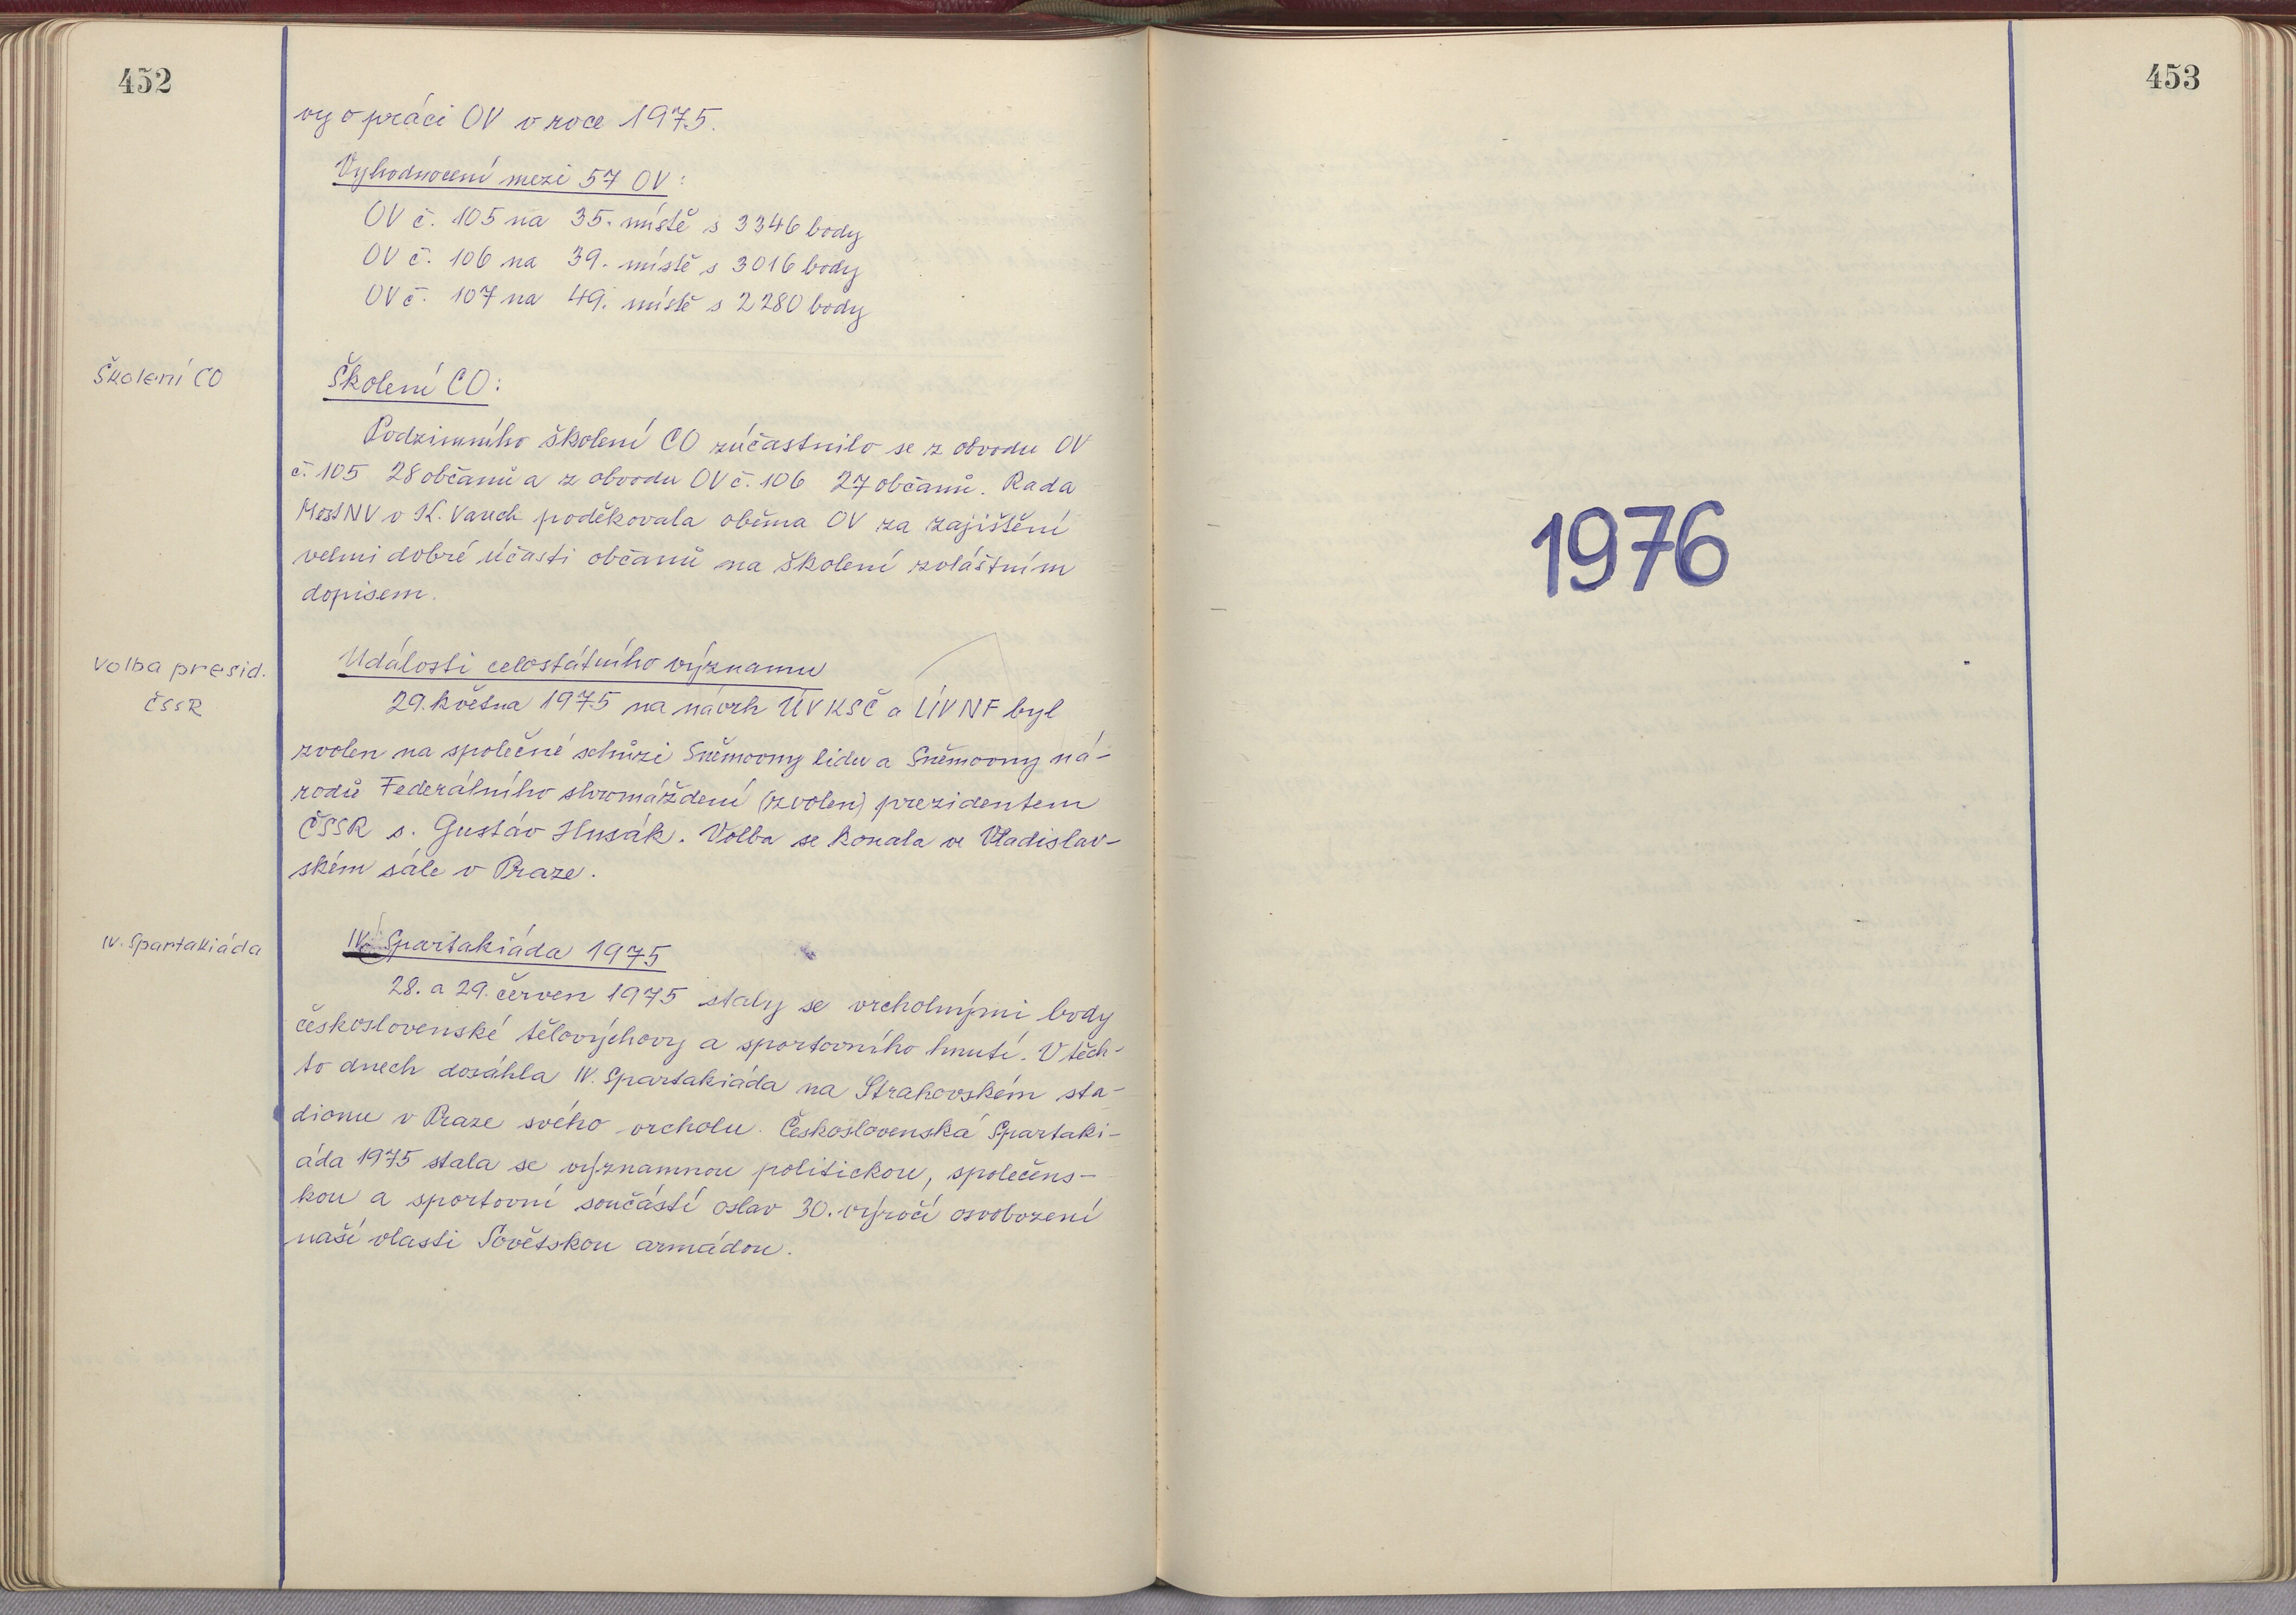 452
vy o práci OV v roce 1975.
Vyhodnocení mezi 57 OV:
OV č. 105 na 35. místě s 3346 body
OV č. 106 na 39. místě s 3016 body
OV č. 107 na 49. místě s 2280 body
Školení CO
Školení CO:
Podzimního školení CO zúčastnilo se z obvodu OV
č. 105 28 občanů a z obvodu OV č. 106 27 občanů. Rada
MěstNV v K. Varech poděkovala oběma OV za zajištění
velmi dobré účasti občanů na školení zvláštním
dopisem.
Volba presid.
ČSSR
Události celostátního významu
29. května 1975 na návrh ÚV KSČ a ÚV NF byl
zvolen na společné schůzi Sněmovny lidu a Sněmovny ná-
rodů Federálního shromáždění (zvolen) prezidentem
ČSSR s. Gustáv Husák. Volba se konala ve Vladislav-
ském sále v Praze.
IV. Spartakiáda
IV. Spartakiáda 1975
28. a 29. červen 1975 staly se vrcholnými body
československé tělovýchovy a sportovního hnutí. V těch-
to dnech dosáhla IV. Spartakiáda na Strahovském sta-
dionu v Praze svého vrcholu. Československá Spartaki-
áda 1975 stala se významnou politickou, společens-
kou a sportovní součástí oslav 30. výročí osvobození
naší vlasti Sovětskou armádou.
453
1976